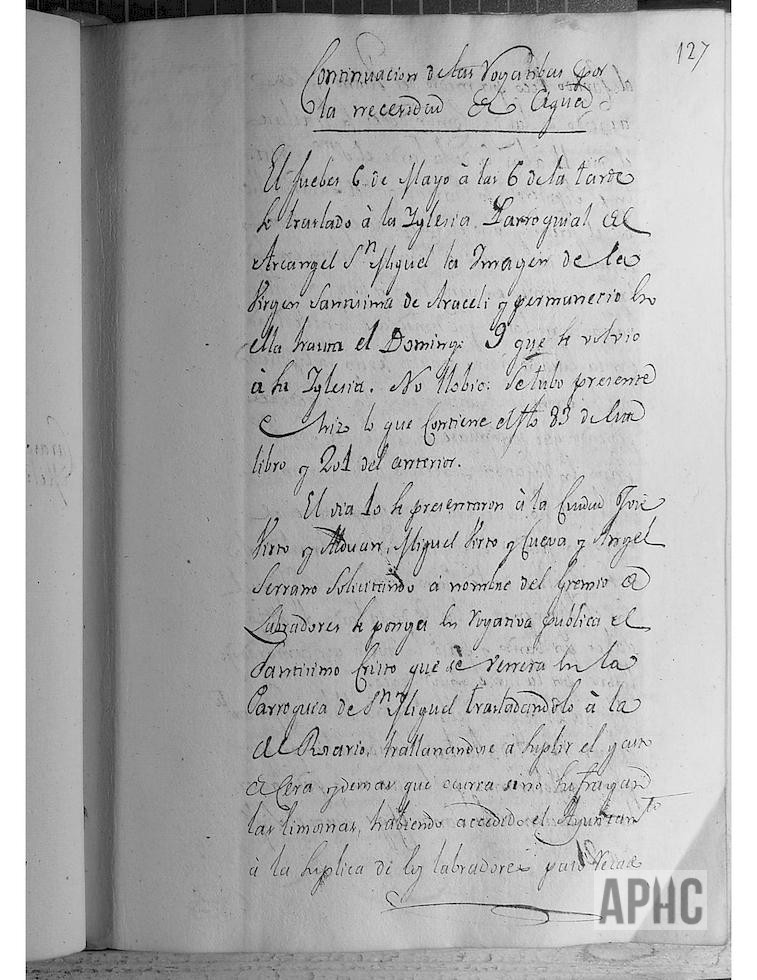 127
Continuacion de las Rogatibas por
la necesidad de Agua
El Juebes 6 de Mayo à las 6 de la tarde
se traslado à la Iglesia Parroquial del
Arcangel Sn Miguel la Imagen de la
Virgen Santisima de Araceli y permanecio en
ella hasta el Domingo 9 que se volvio
à su Iglesia. No llobio: se tubo presente
e hizo lo que contiene el fto 83 de este
libro y 201 del anterior.
El dia 10 se presentaron à la Ciudad Jose
Virto y Aduan, Miguel Virto y Cueva y Angel
Serrano Solicitando a nombre del Gremio de
Labradores se ponga en rogativa publica el
Santisimo Cristo que se venera en la
Parroquia de Sn Miguel trasladandolo à la
del Rosario, hallanandose à suplir el gasto
de Cera y demas que ocurra sino sufragan
las limosnas, habiendo accedido el Ayuntamto
à la suplica de los labradores paso Recado
APHC